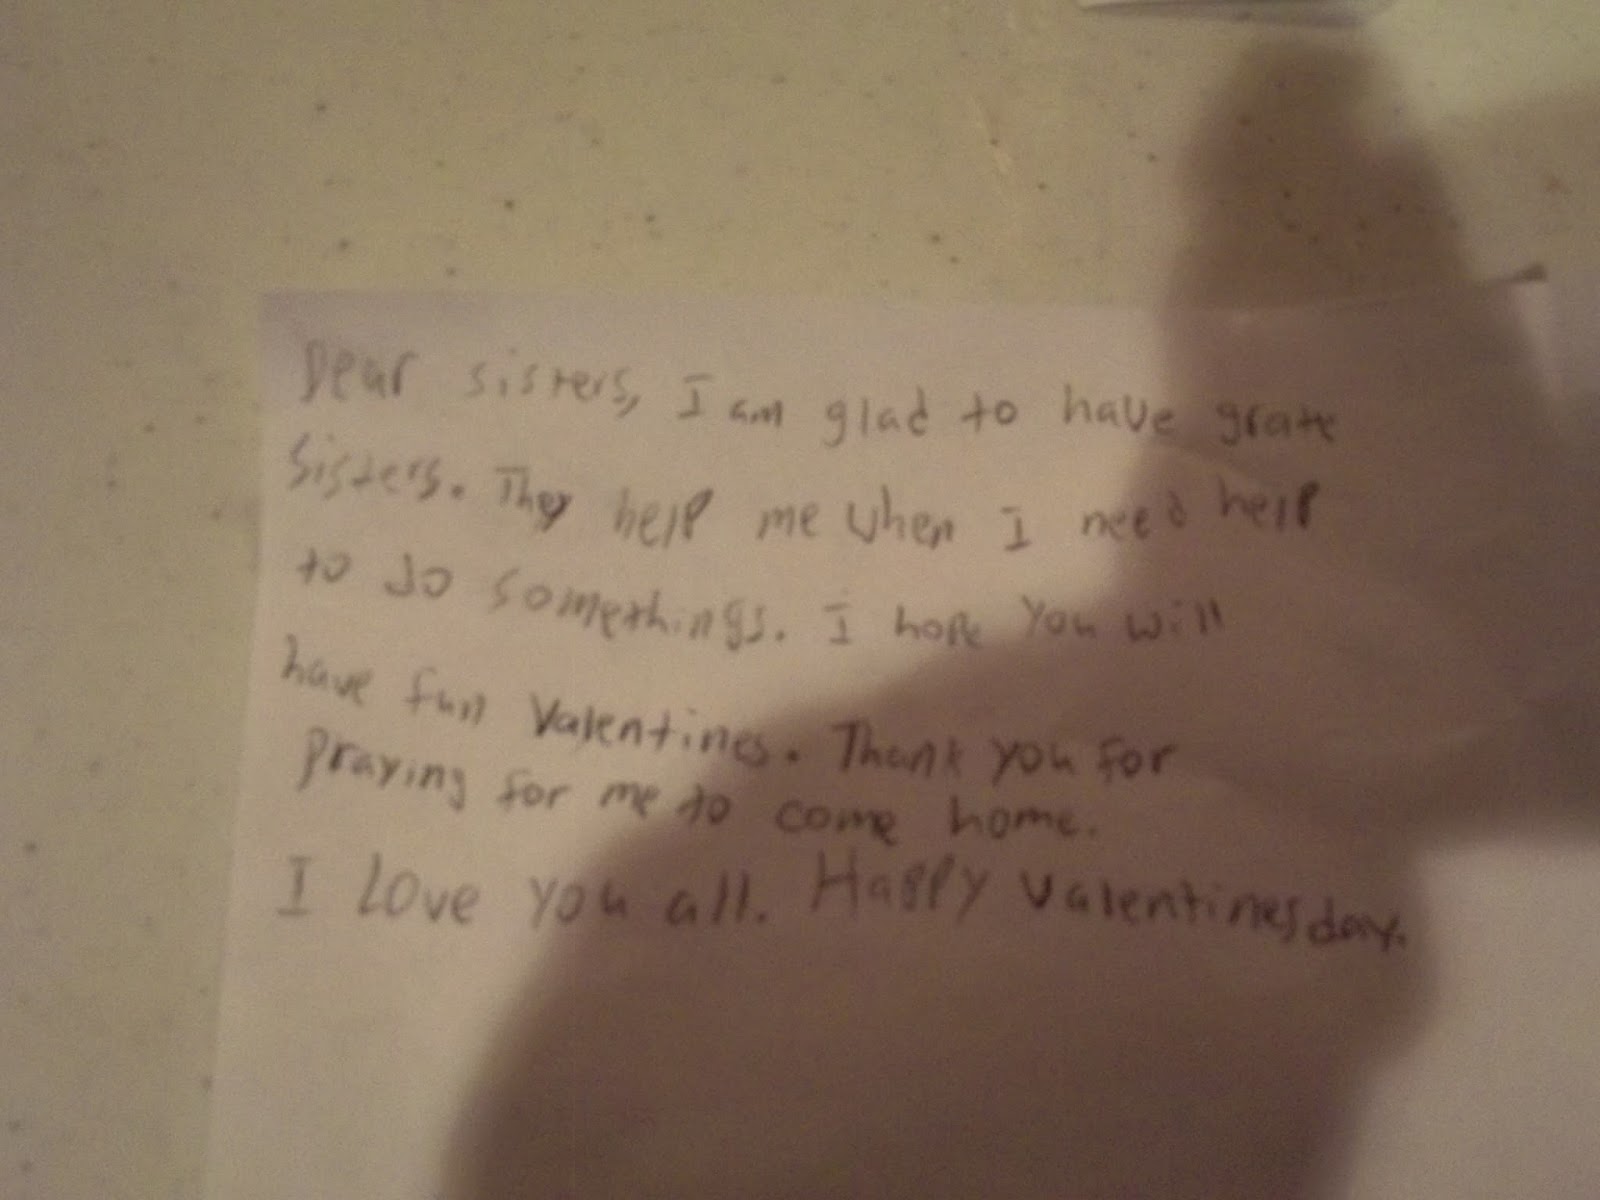 Dear sisters, I am glad to have grate
sisters. They help me when I need help
to do somethings. I hope you will
have fun Valentines. Thank you for
praying for me to come home.
I love you all. Happy Valentines day.